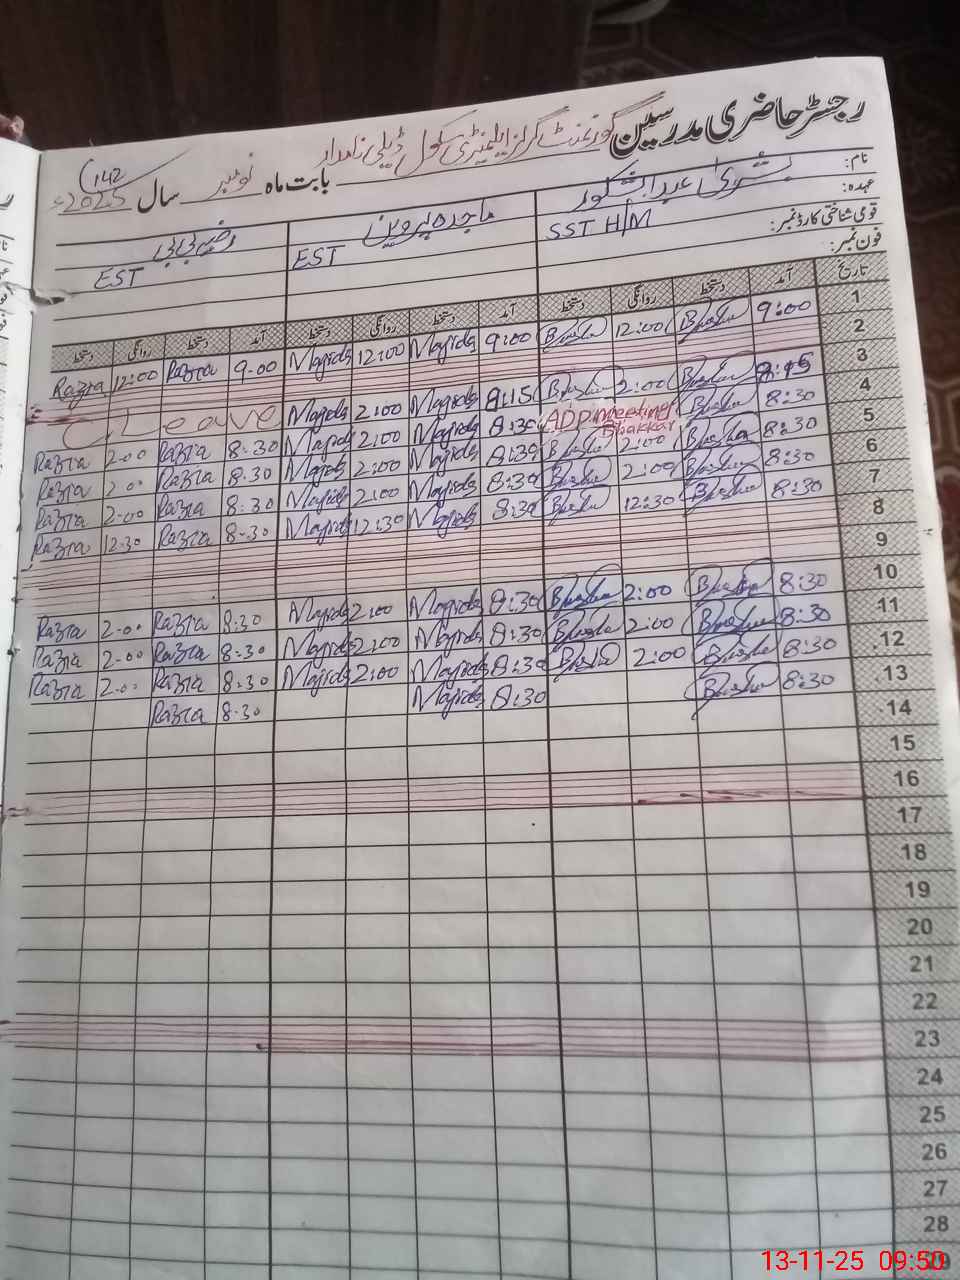 رجسٹر حاضری مدرسین گورنمنٹ گرلز ایلیمنٹری سکول ڈیلی نامدار
بابت ماہ نومبر سال 2025ء
142
نام: بشریٰ عبدالشکور ماجدہ پروین رضیہ بی بی
عہدہ: SST H/M EST EST
قومی شناختی کارڈ نمبر:
فون نمبر:
تاریخ آمد دستخط روانگی دستخط آمد دستخط روانگی دستخط آمد دستخط روانگی دستخط
1 9:00 Bushra 12:00 Bushra 9:00 Majida 12:00 Majida 9.00 Razia 12:00 Razia
2
3 8:15 Bushra 2:00 Bushra 8:15 Majida 2:00 Majida C. Leave
4 8:30 Bushra ADP meeting Bhakkar 8:30 Majida 2:00 Majida 8.30 Razia 2.00 Razia
5 8:30 Bushra 2:00 Bushra 8:30 Majida 2:00 Majida 8.30 Razia 2.00 Razia
6 8:30 Bushra 2:00 Bushra 8:30 Majida 2:00 Majida 8.30 Razia 2.00 Razia
7 8:30 Bushra 12:30 Bushra 8:30 Majida 12:30 Majida 8.30 Razia 12.30 Razia
8
9
10 8:30 Bushra 2:00 Bushra 8:30 Majida 2:00 Majida 8:30 Razia 2.00 Razia
11 8:30 Bushra 2:00 Bushra 8:30 Majida 2:00 Majida 8.30 Razia 2.00 Razia
12 8:30 Bushra 2:00 Bushra 8:30 Majida 2:00 Majida 8.30 Razia 2.00 Razia
13 8:30 Bushra 8:30 Majida 8.30 Razia
14
15
16
17
18
19
20
21
22
23
24
25
26
27
28
29
13-11-25 09:50